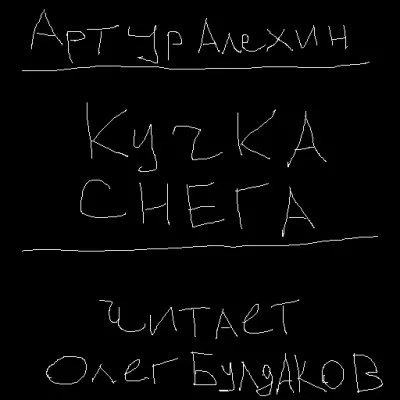 Артур Алехин
Кучка
СНЕГА
Читает
Олег Булдаков